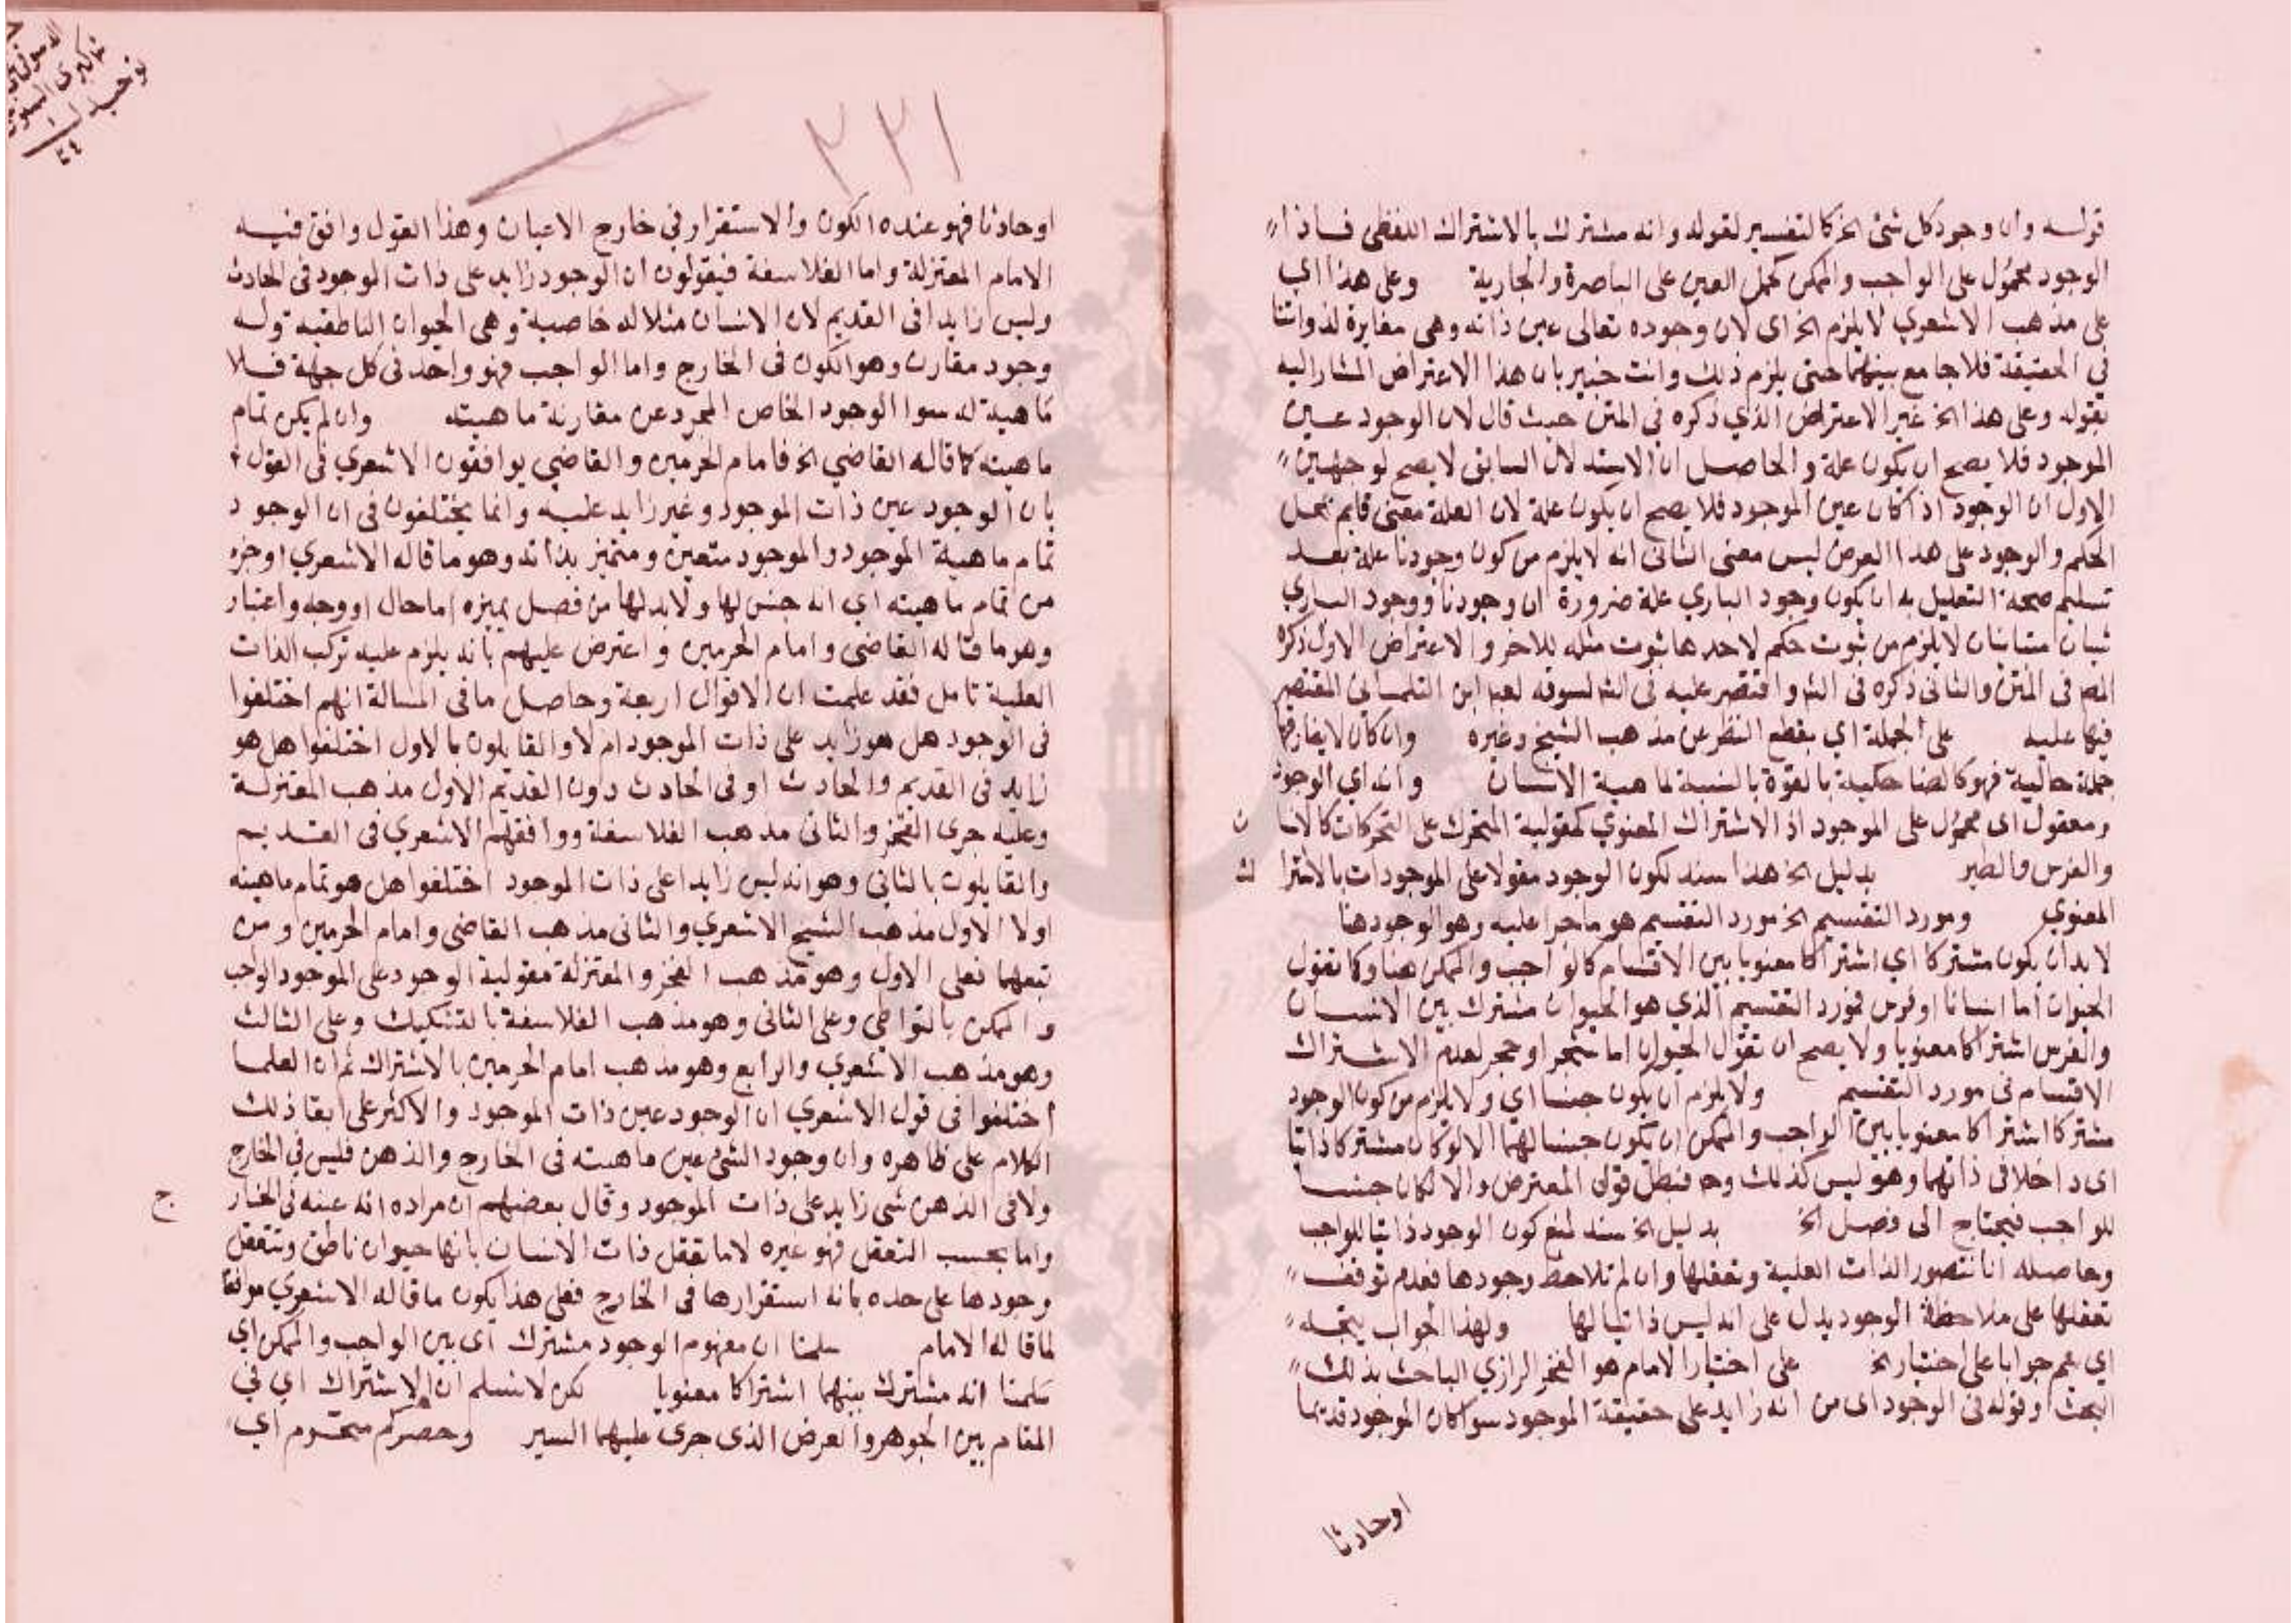 قوله وان وجود كل شئ الخ كالتفسير لقوله وانه مشترك بالاشتراك اللفظى فاذا
الوجود محمول على الواجب والممكن كحمل العين على الباصرة والجارية وعلى هذا اى
على مذهب الاشعري لا يلزم الخ اى لان وجوده تعالى عين ذاته وهى مغايرة لذواتنا
في الحقيقة فلا جامع بينهما حتى يلزم ذلك وانت خبير بان هذا الاعتراض المشار اليه
بقوله وعلى هذا الخ غير الاعتراض الذي ذكره فى المتن حيث قال لان الوجود عين
الموجود فلا يصح ان يكون علة والحاصل ان الاستدلال السابق لا يصح لوجهين
الاول ان الوجود اذا كان عين الموجود فلا يصح ان يكون علة لان العلة معنى قايم بمحل
الحكم والوجود على هذا الغرض ليس معنى الثانى انه لا يلزم من كون وجودنا علة بعد
تسليم صحة التعليل به ان يكون وجود الباري علة ضرورة ان وجودنا ووجود الباري
شيان متباينان لا يلزم من ثبوت حكم لاحدهما ثبوت مثله للاخر والاعتراض الاول ذكره
المص فى المتن والثانى ذكره فى الشر واقتصر عليه فى الشر لسوقه لعبا ابن التلمسانى المقتصر
فيها عليه على الجملة اي بقطع النظر عن مذهب الشيخ وغيره وان كان لا يفارقها
جملة حالية فهو كالضاحكية بالقوة بالنسبة لماهية الانسان وانه اي الوجود
ومعقول اى محمول على الموجود اذ الاشتراك المعنوي كمقولية المتحرك على المتحركات كالانسا ن
والفرس والطير بدليل الخ هذا سند لكون الوجود مقولا على الموجودات بالاشترا ك
المعنوي ومورد التقسيم الخ مورد التقسيم هو ما جرا عليه وهو الوجود هنا
لا بد ان يكون مشتركا اي اشتراكا معنويا بين الاقسام كالواجب والممكن هنا وكما تقول
الحيوان اما انسانا او فرس فمورد التقسيم الذي هو الحيوان مشترك بين الانسان
والفرس اشتراكا معنويا ولا يصح ان تقول الحيوان اما شجر او حجر لعدم الاشتراك
الاقسام فى مورد التقسيم ولا يلزم ان يكون جنسا اي ولا يلزم من كون الوجود
مشتركا اشتراكا معنويا بين الواجب والممكن ان يكون جنسا لهما الا لو كان مشتركا ذاتيا
اى داخلا فى ذاتهما وهو ليس كذلك وح فبطل قول المعترض والا لكان جنسا
للواجب فيحتاج الى فصل الخ بدليل الخ سند لمنع كون الوجود ذاتيا للواجب
وحاصله انا نتصور الذات العلية ونعقلها وان لم نلاحظ وجودها فعدم توقف
تعقلها على ملاحظة الوجود يدل على انه ليس ذاتيا لها ولهذا الجواب يتجه
اي يتم جوابا على اختيار الخ على اختيار الامام هو الفخر الرازي الباحث بذلك
البحث وقوله فى الوجود اى من انه زايد على حقيقة الموجود سوا كان الموجود قديما
اوحادثا
٢٢١
اوحادثا فهو عنده الكون والاستقرار في خارج الاعيان وهذا القول وافق فيه
الامام المعتزلة واما الفلاسفة فيقولون ان الوجود زايد على ذات الوجود فى الحادث
وليس زايدا فى القديم لان الانسان مثلا له خاصية وهى الحيوان الناطقية وله
وجود مقارن وهو الكون فى الخارج واما الواجب فهو واحد فى كل جهة فلا
ماهية له سوا الوجود الخاص المجرد عن مقارنة ماهيته وان لم يكن تمام
ماهيته كما قاله القاضي الخ فامام الحرمين والقاضي يوافقون الاشعري فى القول
بان الوجود عين ذات الموجود وغير زايد عليه وانما يختلفون فى ان الوجود
تمام ماهية الموجود والموجود متعين ومتميز بذاته وهو ما قاله الاشعري او جزء
من تمام ماهيته اي انه جنس لها ولا بد لها من فصل يميزه اما حال او وجه واعتبار
وهو ما قاله القاضى وامام الحرمين واعترض عليهم بانه يلزم عليه تركب الذات
العلية تامل فقد علمت ان الاقوال اربعة وحاصل ما فى المسالة انهم اختلفوا
فى الوجود هل هو زايد على ذات الموجود ام لا والقايلون بالاول اختلفوا هل هو
زايد فى القديم والحادث او فى الحادث دون القديم الاول مذهب المعتزلة
وعليه جرى الفخر والثانى مذهب الفلاسفة ووافقهم الاشعري فى القديم
والقايلون بالثاني وهو انه ليس زايدا على ذات الموجود اختلفوا هل هو تمام ماهيته
اولا الاول مذهب الشيخ الاشعري والثانى مذهب القاضى وامام الحرمين ومن
تبعهما فعلى الاول وهو مذهب الفخر والمعتزلة مقولية الوجود على الموجود الواجب
والممكن بالتواطى وعلى الثانى وهو مذهب الفلاسفة بالتشكيك وعلى الثالث
وهو مذهب الاشعري والرابع وهو مذهب امام الحرمين بالاشتراك ثم ان العلما
اختلفوا فى قول الاشعري ان الوجود عين ذات الموجود والاكثر على ابقا ذلك
الكلام على ظاهره وان وجود الشئ عين ماهيته فى الخارج والذهن فليس في الخارج
ولا فى الذهن شى زايد على ذات الموجود وقال بعضهم ان مراده انه عينه فى الخار ج
واما بحسب التعقل فهو غيره لاما نعقل ذات الانسان بانها حيوان ناطق ونتعقل
وجودها على حده بانه استقرارها فى الخارج فعلى هذا يكون ما قاله الاشعري موافقا
لما قاله الامام سلمنا ان مفهوم الوجود مشترك اى بين الواجب والممكن اي
سلمنا انه مشترك بينهما اشتراكا معنويا لكن لا نسلم ان الاشتراك اي في
المقام بين الجوهر والعرض الذى جرى عليهما السير وحصركم مخروم اي